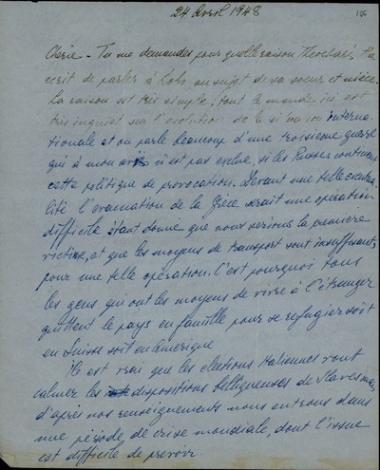 24 Avril 1948
Cherie - Tu me demandes pour quelle raison Theocharis t'a
ecrit de parler à Lolo au sujet de sa soeur et nièce.
La raison est très simple, tout le monde ici est
très inquiet sur l'évolution de la situation interna-
tionale et on parle beaucoup d'une troisième guerre
qui à mon avis n'est pas exclue, si les Russes continuent
cette politique de provocation. Devant une telle éventua-
lité l'évacuation de la Grèce serait une opération
difficile étant donné que nous serions la première
victime, et que les moyens de transport sont insuffisants
pour une telle opération. C'est pourquoi tous
les gens qui ont les moyens de vivre à l'étranger
quittent le pays en famille pour se refugier soit
en Suisse soit en Amerique
Il est vrai que les elections Italiennes vont
calmer les dispositions belliqueuses de Slaves mais
d'après nos renseignements nous entrons dans
une période de crise mondiale, dont l'issue
est difficile de prévoir